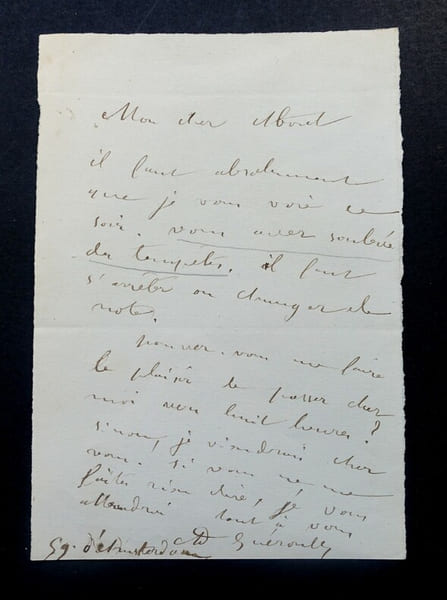 Mon cher About
il faut absolument
que je vous voie ce
soir. vous avez soulevé
des tempêtes. il faut
s'arrêter ou changer de
note.
pouvez-vous me faire
le plaisir de passer chez
moi vers huit heures?
sinon, je viendrai chez
vous. si vous ne me
faites rien dire, je vous
attendrai tout à vous
Ad Guéroult
59. d'Amsterdam